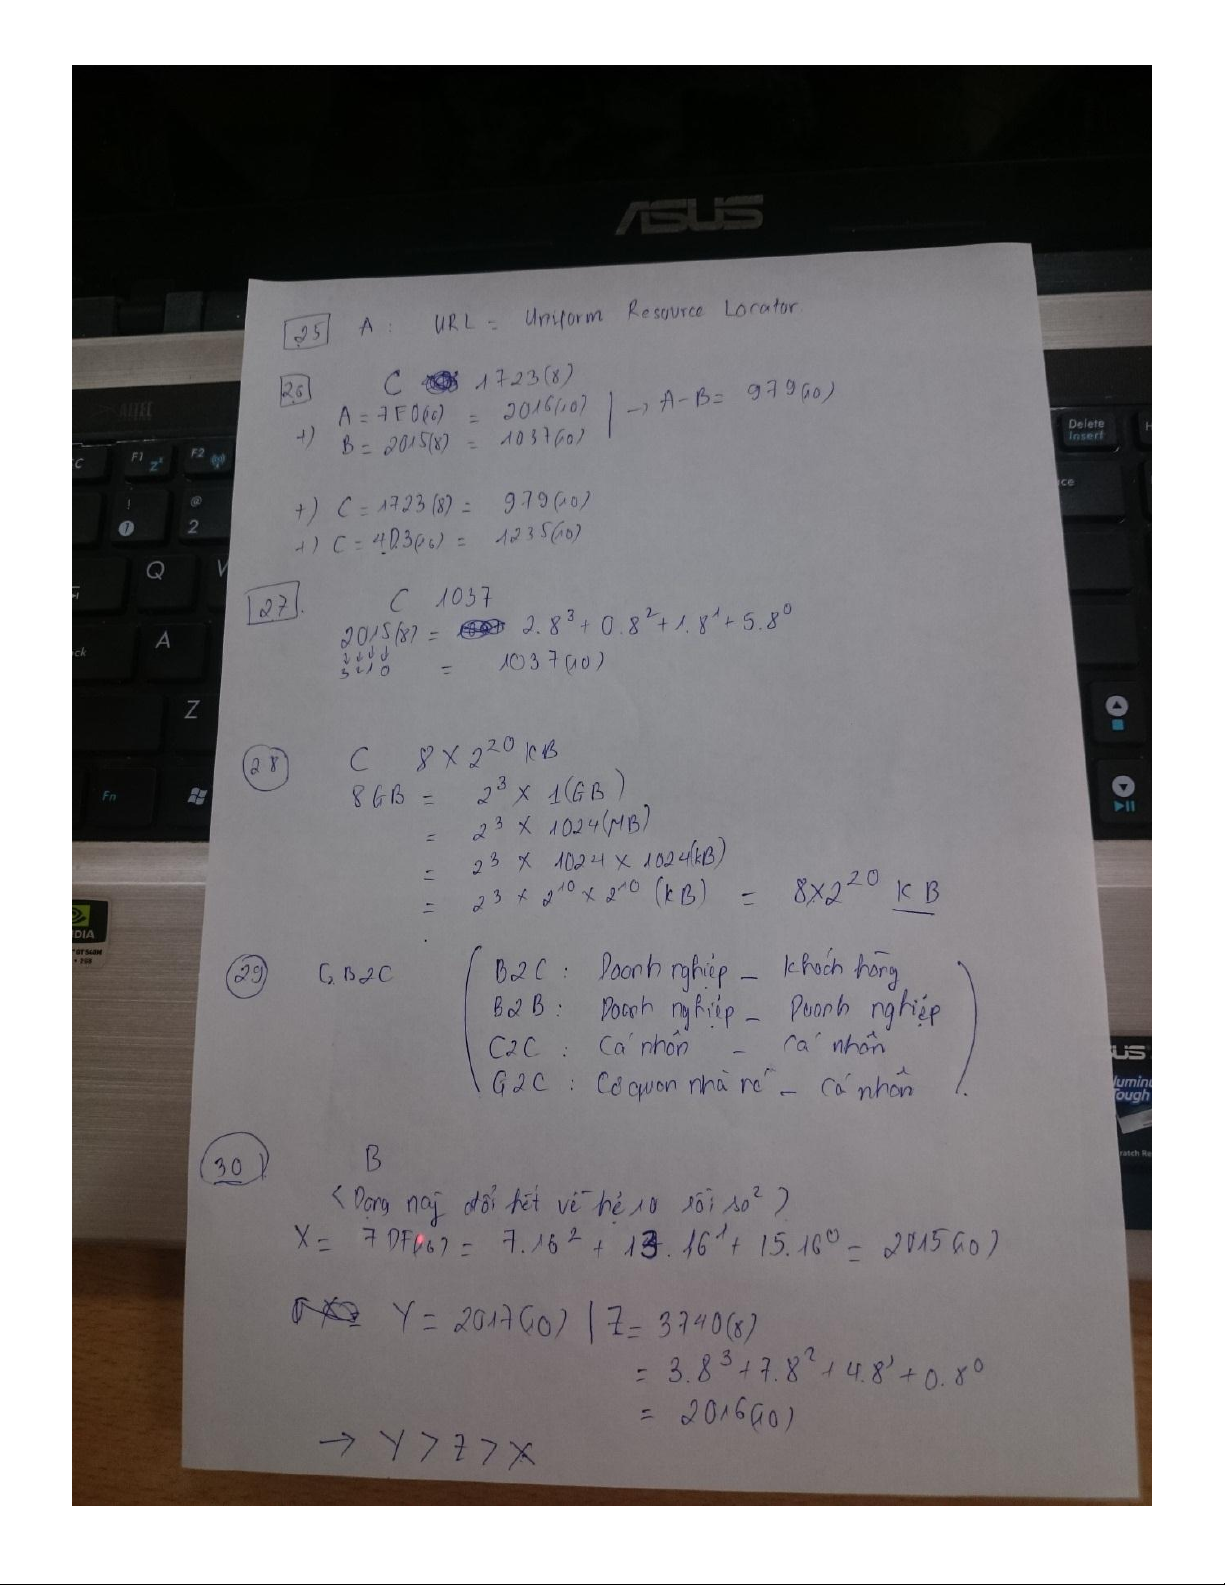 ASUS
25 A : URL = Uniform Resource Locator.
26 C 1723(8)
+) A = 7E0(16) = 2016(10)
B = 2015(8) = 1037(10)
→ A-B = 979(10)
+) C = 1723(8) = 979(10)
+) C = 4D3(16) = 1235(10)
27. C 1037
2015(8) = 2.8³ + 0.8² + 1.8¹ + 5.8⁰
3210
= 1037(10)
28 C 8 x 2²⁰ KB
8GB = 2³ x 1(GB)
= 2³ x 1024(MB)
= 2³ x 1024 x 1024(kB)
= 2³ x 2¹⁰ x 2¹⁰ (kB) = 8x2²⁰ KB
29 G B2C
B2C : Doanh nghiệp - Khách hàng
B2B : Doanh nghiệp - Doanh nghiệp
C2C : Cá nhân - Cá nhân
G2C : Cơ quan nhà nc' - Cá nhân
30 B
(Dạng này đổi hết về hệ 10 rồi so²)
X = 7DF(16) = 7.16² + 13.16¹ + 15.16⁰ = 2015(10)
Y = 2017(10) | Z = 3740(8)
= 3.8³ + 7.8² + 4.8¹ + 0.8⁰
= 2016(10)
→ Y > Z > X
F1
F2
!
1
@
2
Q
A
Z
Fn
Delete
Insert